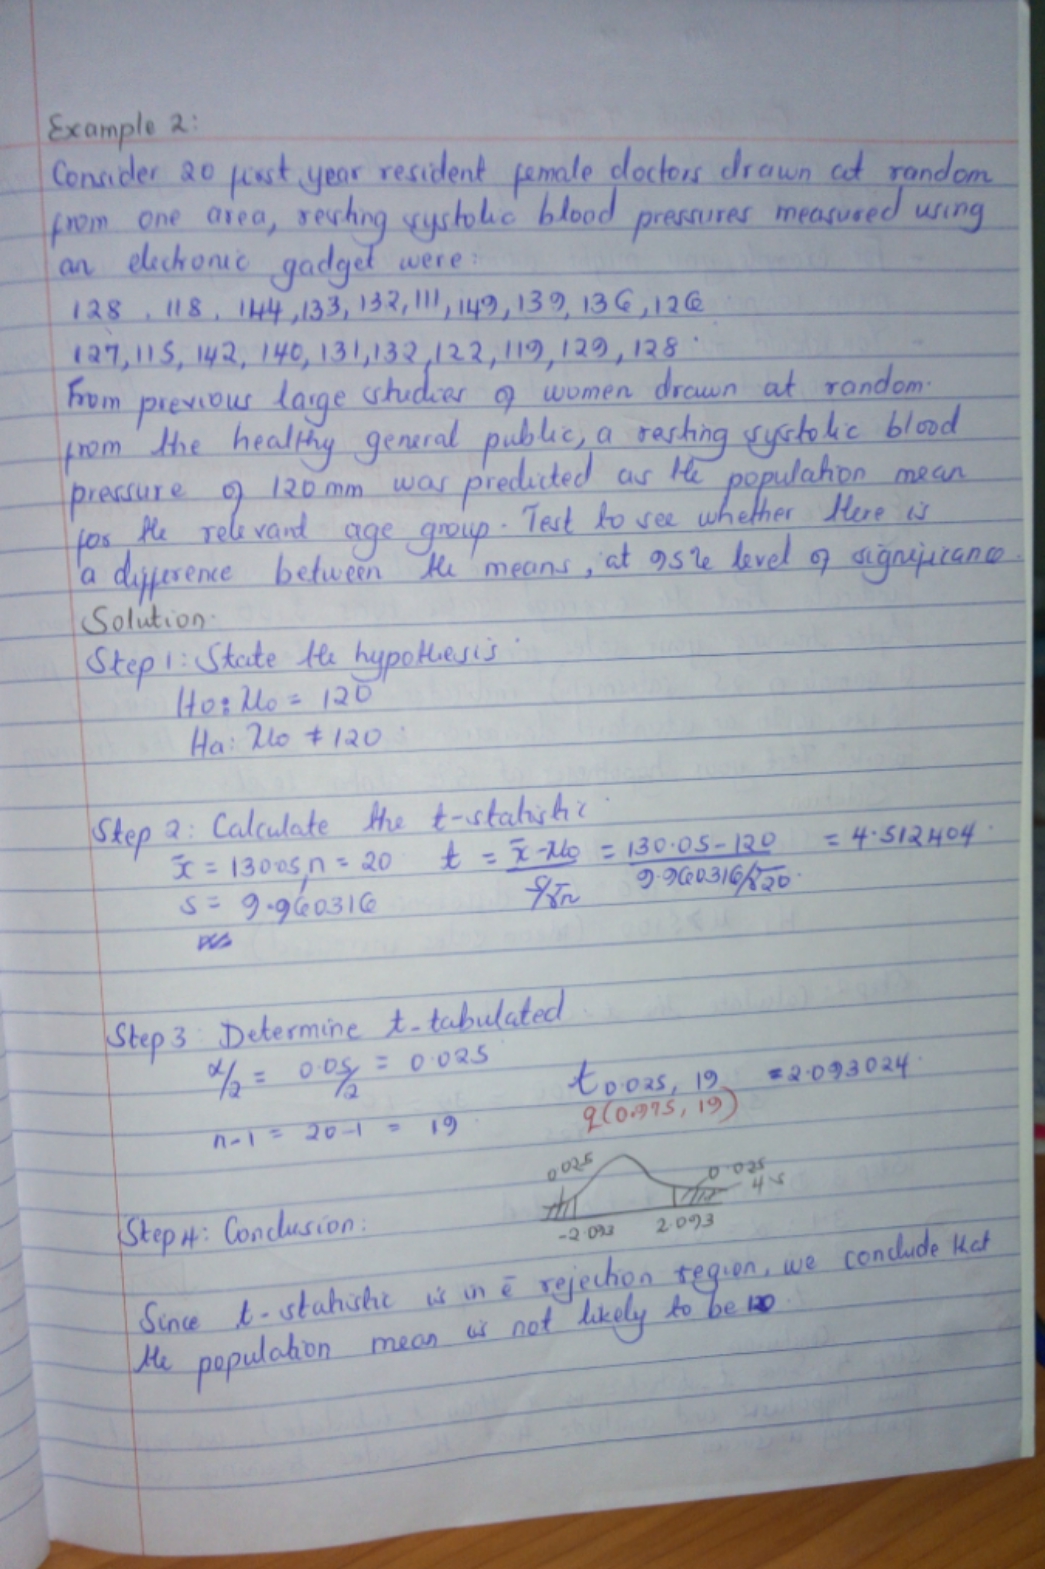 Example 2:
Consider 20 first year resident female doctors drawn at random
from one area, resting systolic blood pressures measured using
an electronic gadget were:
128, 118, 144, 133, 132, 111, 149, 139, 136, 126
127, 115, 142, 140, 131, 132, 122, 119, 129, 128.
From previous large studies of women drawn at random.
from the healthy general public, a resting systolic blood
pressure of 120mm was predicted as the population mean
for the relevant age group. Test to see whether there is
a difference between the means, at 95% level of significance.
Solution.
Step 1: State the hypothesis
H0: μ0 = 120
Ha: μ0 ≠ 120
Step 2: Calculate the t-statistic
x̄ = 130.05, n = 20 t = (x̄ - μ0)/(s/√n) = (130.05 - 120)/(9.960316/√20) = 4.512404.
s = 9.960316
Step 3: Determine t-tabulated
α/2 = 0.05/2 = 0.025 t 0.025, 19 = 2.093024.
q(0.975, 19)
n-1 = 20-1 = 19
0.025 0.025
4.5
-2.093 2.093
Step 4: Conclusion:
Since t-statistic is in ē rejection region, we conclude that
the population mean is not likely to be 120.